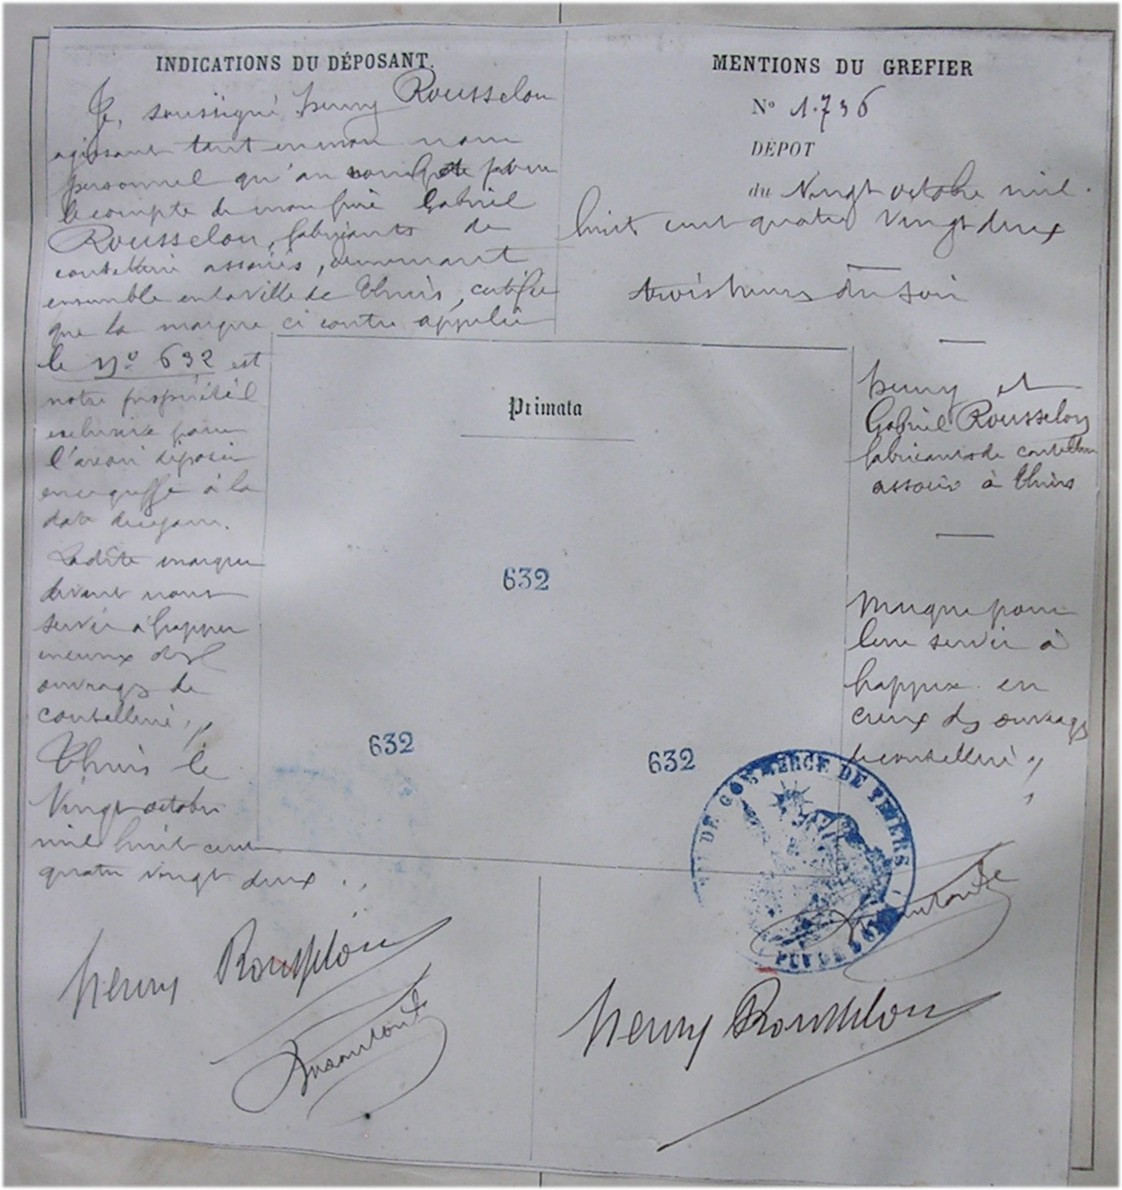 INDICATIONS DU DÉPOSANT.
Je, soussigné, henry Rousselon
agissant tant en mon nom
personnel qu'au nom et pour
le compte de mon frère Gabriel
Rousselon, fabricants de
coutellerie associés, demeurant
ensemble en la ville de Thiers, certifie
que la marque ci contre appelée
le No 632 est
notre propriété
exclusive pour
l'avoir déposée
en ce greffe à la
date de ce jour.
Ladite marque
devant nous
servir à frapper
en creux des
ouvrages de
coutellerie.,,
Thiers le
Vingt octobre
mil huit cent
quatre vingt deux.,,
henry Rousselon
MENTIONS DU GREFIER
No 1.736
DÉPOT
du Vingt octobre mil
huit cent quatre vingt deux
trois heures du soir
henry et
Gabriel Rousselon
fabricants de coutellerie
associés à Thiers
Marque pour
leur servir à
frapper en
creux des ouvrages
de coutellerie.,,
Primata
632
632
632
DE COMMERCE DE THIERS
PUY DE DOME
henry Rousselon